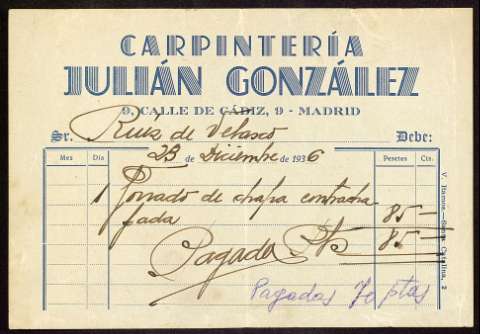 CARPINTERÍA
JULIÁN GONZÁLEZ
9, CALLE DE CÁDIZ, 9 - MADRID
Sr. Ruiz de Velasco Debe:
23 de Diciembre de 1936
Mes Día Pesetas Cts.
1 Forrado de chapa contracha
pada 85 —
Pagado Pts 85 —
Pagadas 70 ptas
V. Ramos.—Santa Catalina, 2